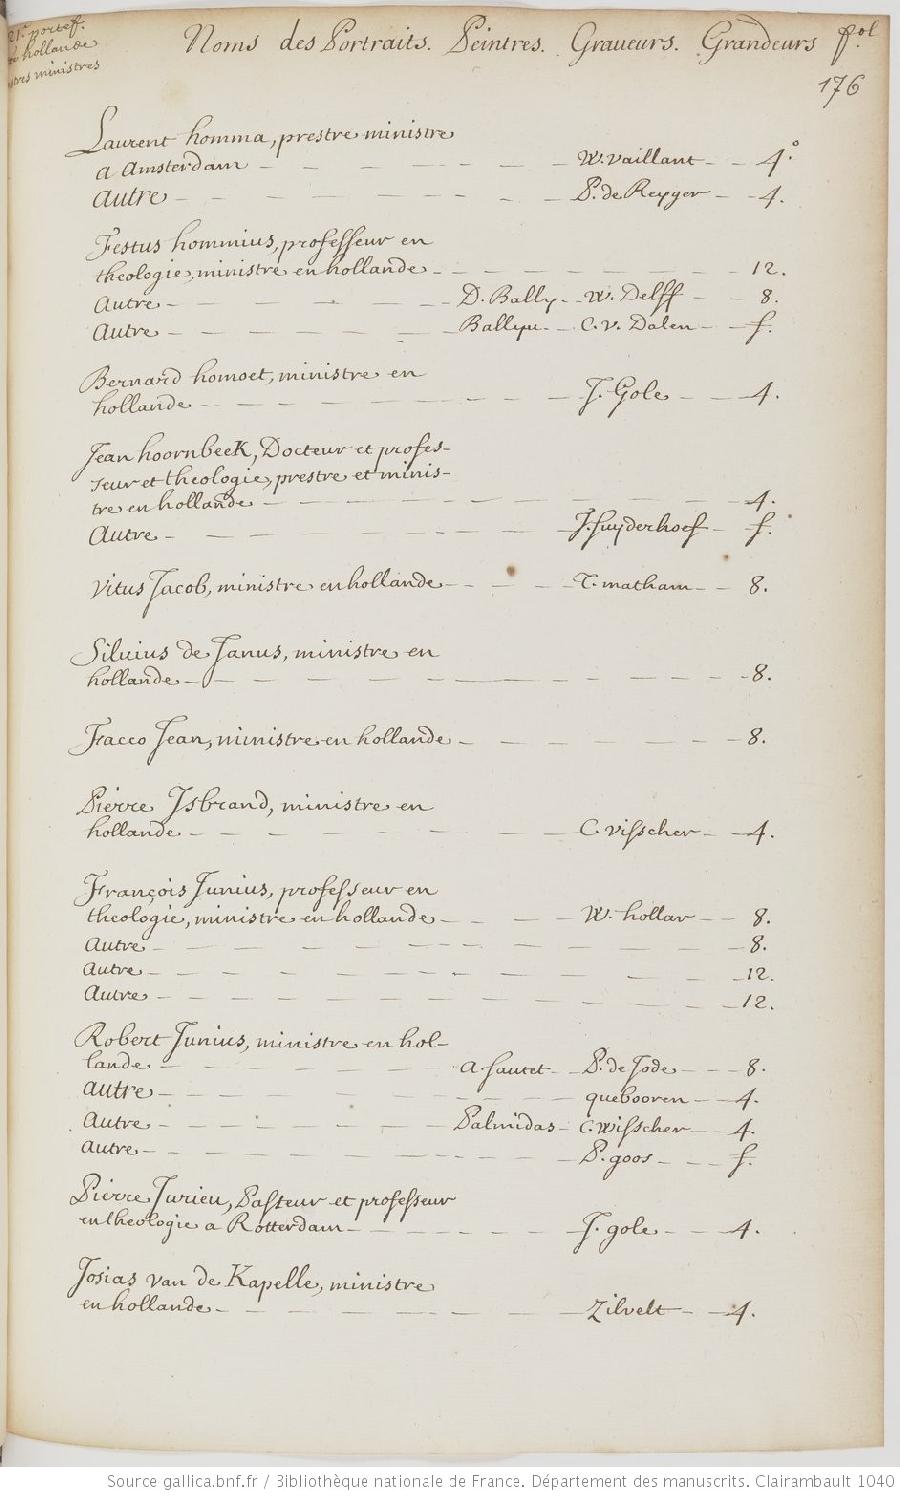 21e portef.
de hollande
autres ministres
Noms des Portraits. Peintres. Graveurs. Grandeurs fol
176
Laurent homma, prestre ministre
a Amsterdam - - - - - - - W. Vaillant - - 4°.
autre - - - - - - - - P. de Reyger - - 4.
Festus hommius, professeur en
theologie, ministre en hollande - - - - - - - 12.
Autre - - - - - D. Bally - - W. Delff - 8.
Autre - - - - - Ballyu - C. v. Dalen - f.
Bernard homoet, ministre en
hollande - - - - - - - - J. Gole - - 4.
Jean hoornbeek, Docteur et profes-
seur et theologie, prestre et minis-
tre en hollande - - - - - - - - 4.
Autre - - - - - - - J. Suyderhoef - f.
Vitus Jacob, ministre en hollande - - - T. matham - - 8.
Silvius de Janus, ministre en
hollande - - - - - - - - - - 8.
Facco Jean, ministre en hollande - - - - - - 8.
Pierre Isbrand, ministre en
hollande - - - - - - - C. Visscher - - 4.
François Junius, professeur en
theologie, ministre en hollande - - - W. hollar - - 8.
Autre - - - - - - - - - - 8.
Autre - - - - - - - - - - 12.
Autre - - - - - - - - - - 12.
Robert Junius, ministre en hol-
lande. - - - - - A. Sautet - - P. de Jode - - 8.
autre - - - - - - - quebooren - - 4.
Autre - - - - - Palmidas - C. Wisscher - 4.
Autre - - - - - - - P. goos - - - f.
Pierre Jurieu, Pasteur et professeur
en theologie a Rotterdam - - - - - J. gole - - 4.
Josias van de Kapelle, ministre
en hollande - - - - - - - Zilvelt - - 4.
Source gallica.bnf.fr / Bibliothèque nationale de France. Département des manuscrits. Clairambault 1040